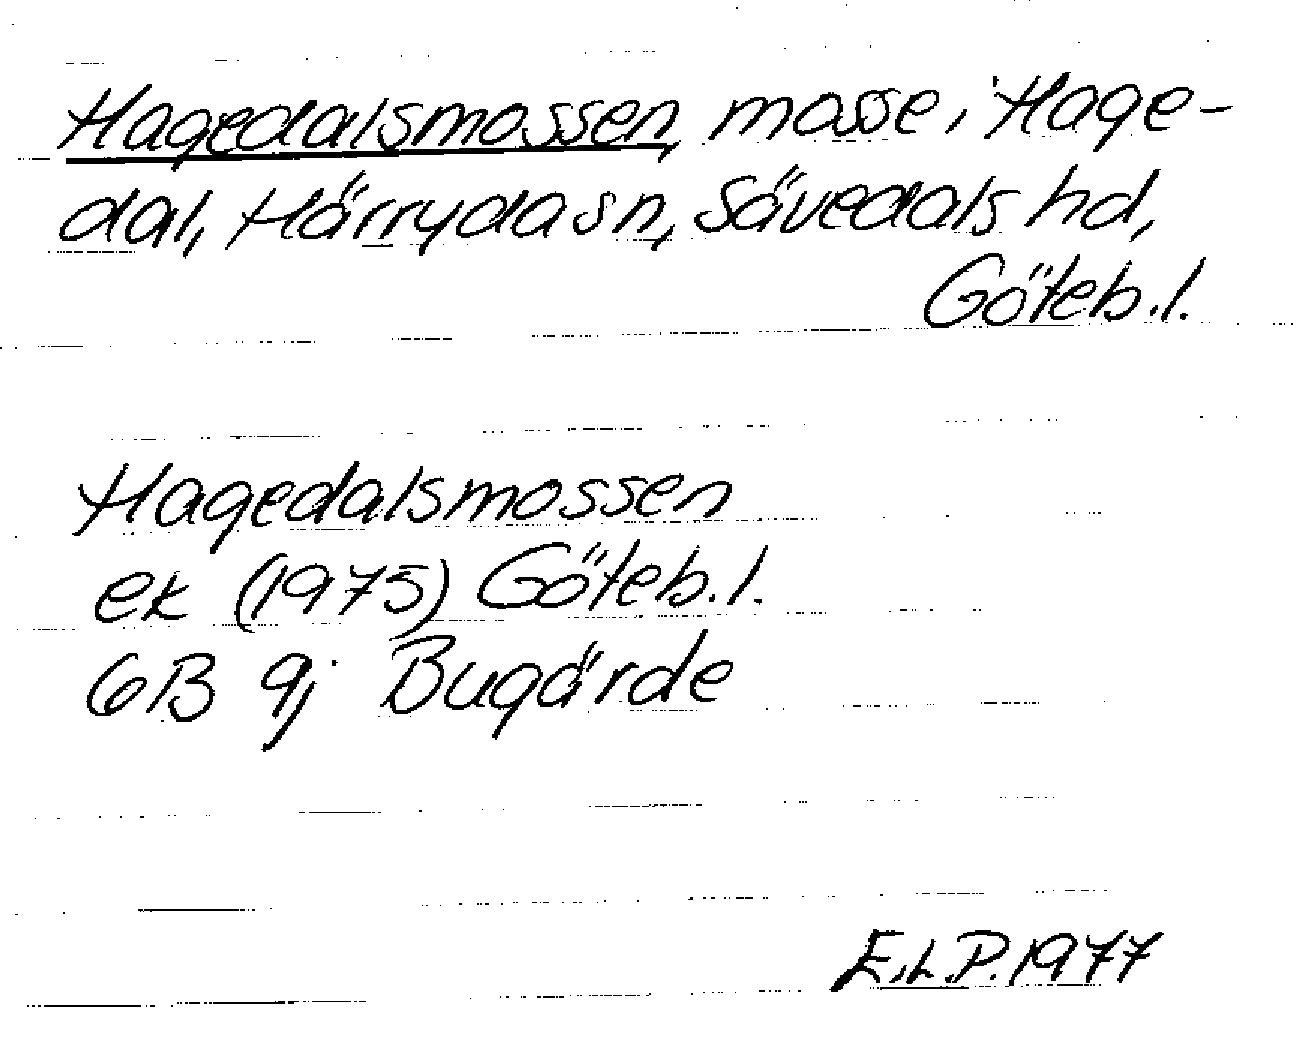 Hagedalsmossen, mosse i Hage-
dal, Härryda sn, Sävedals hd,
Göteb. l.
Hagedalsmossen
ek (1975) Göteb. l.
6B 9j Bugärde
E.L.P. 1977